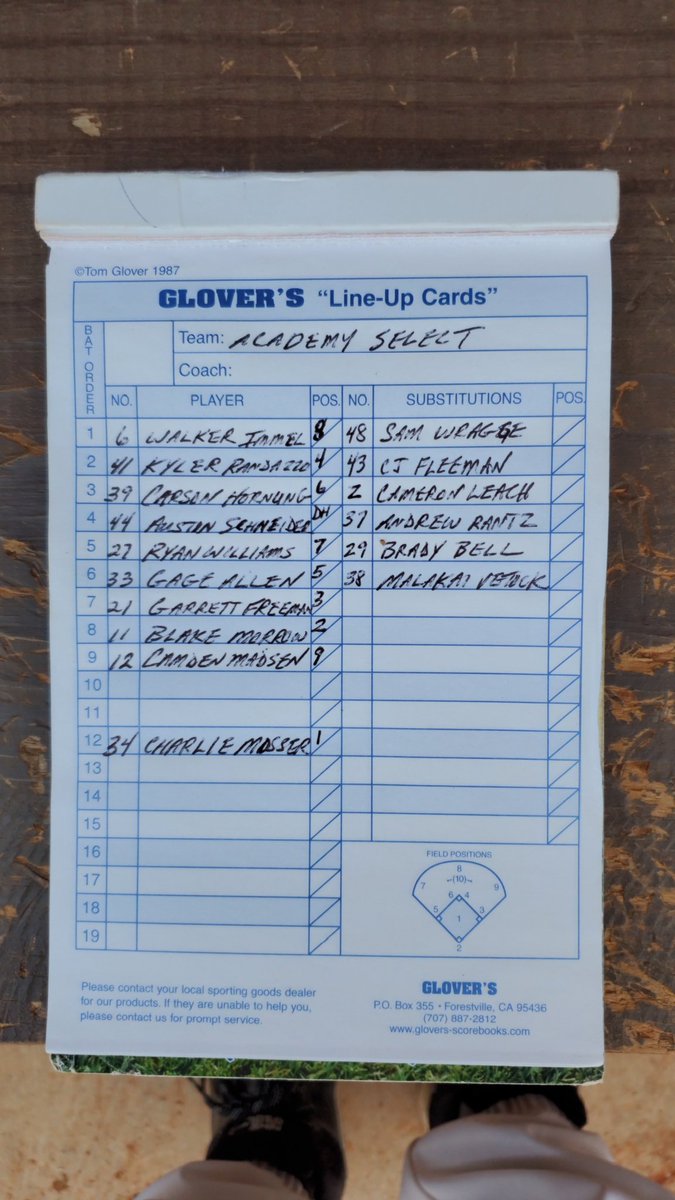 ©Tom Glover 1987
GLOVER'S "Line-Up Cards"
BAT ORDER
Team: ACADEMY SELECT
Coach:
NO. PLAYER POS. NO. SUBSTITUTIONS POS.
1 6 WALKER IMMEL 8 48 SAM WRAGGE
2 41 KYLER RANDAZZO 4 43 CJ FLEEMAN
3 39 CARSON HORNUNG 6 2 CAMERON LEACH
4 44 AUSTON SCHNEIDER DH 37 ANDREW RANTZ
5 27 RYAN WILLIAMS 7 29 BRADY BELL
6 33 GAGE ALLEN 5 38 MALAKAI VETOCK
7 21 GARRETT FREEMAN 3
8 11 BLAKE MORROW 2
9 12 CAMDEN MADSEN 9
10
11
12 34 CHARLIE MOSSER 1
13
14
15
16
17
18
19
FIELD POSITIONS
8
(10)
7 9
6 4
5 1 3
2
Please contact your local sporting goods dealer
for our products. If they are unable to help you,
please contact us for prompt service.
GLOVER'S
P.O. Box 355 • Forestville, CA 95436
(707) 887-2812
www.glovers-scorebooks.com